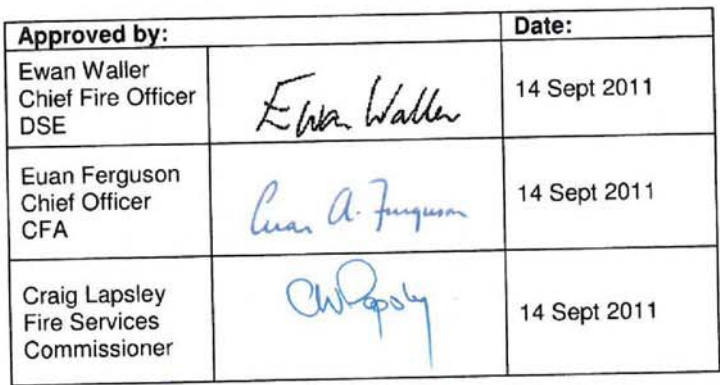 Approved by:
Date:
Ewan Waller
Chief Fire Officer
DSE
Ewan Waller
14 Sept 2011
Euan Ferguson
Chief Officer
CFA
Euan A. Ferguson
14 Sept 2011
Craig Lapsley
Fire Services
Commissioner
CWLapsley
14 Sept 2011